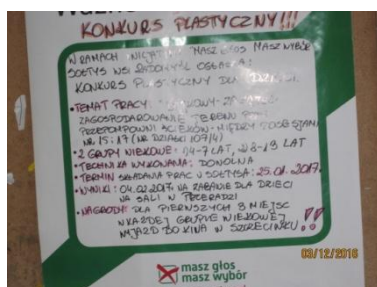 KONKURS PLASTYCZNY!!!
W RAMACH INICJATYWY MASZ GŁOS MASZ WYBÓR
SOŁTYS WSI RADOMYŚL OGŁASZA
KONKURS PLASTYCZNY DLA DZIECI
• TEMAT PRACY:
ZAGOSPODAROWANIE TERENU PRZY
PRZEPOMPOWNI ŚCIEKÓW - MIĘDZY POSESJAMI
NR. 15 i 17 (NR DZIAŁKI 107/4)
• 2 GRUPY WIEKOWE: 4-7 LAT, 8-13 LAT
• TECHNIKA WYKONANIA: DOWOLNA
• TERMIN SKŁADANIA PRAC U SOŁTYSA: 25.01.2017.
• WYNIKI: 04.02.2017. NA ZABAWIE DLA DZIECI
NA SALI W
• NAGRODY: DLA PIERWSZYCH 3 MIEJSC
W KAŻDEJ GRUPIE WIEKOWEJ
WYJAZD DO KINA W SZCZECINKU!!
masz głos
masz wybór
03/12/2016